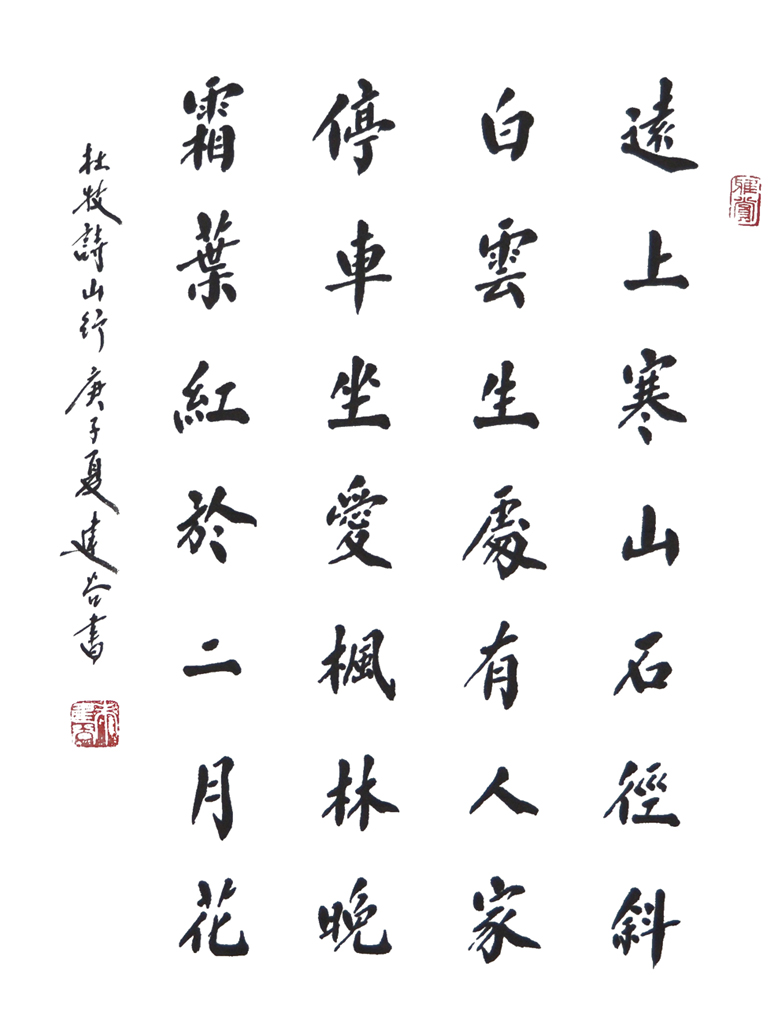 雅賞
遠上寒山石徑斜
白雲生處有人家
停車坐愛楓林晚
霜葉紅於二月花
杜牧詩山行庚子夏建谷書